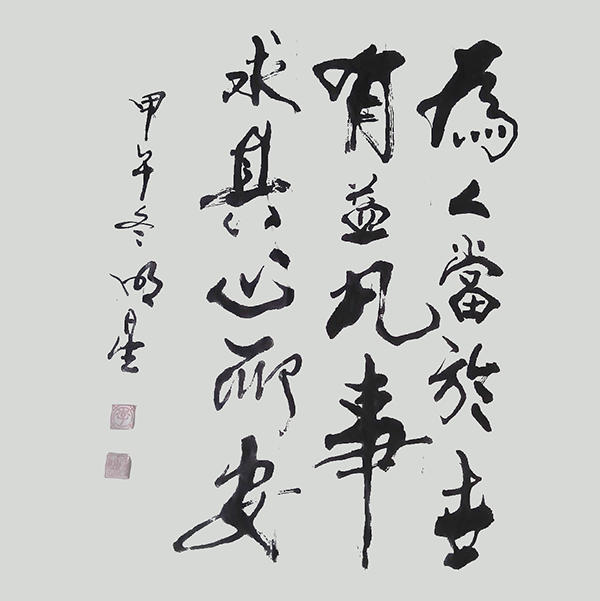 為人當於世
有益凡事
求其心所安
甲午冬明星